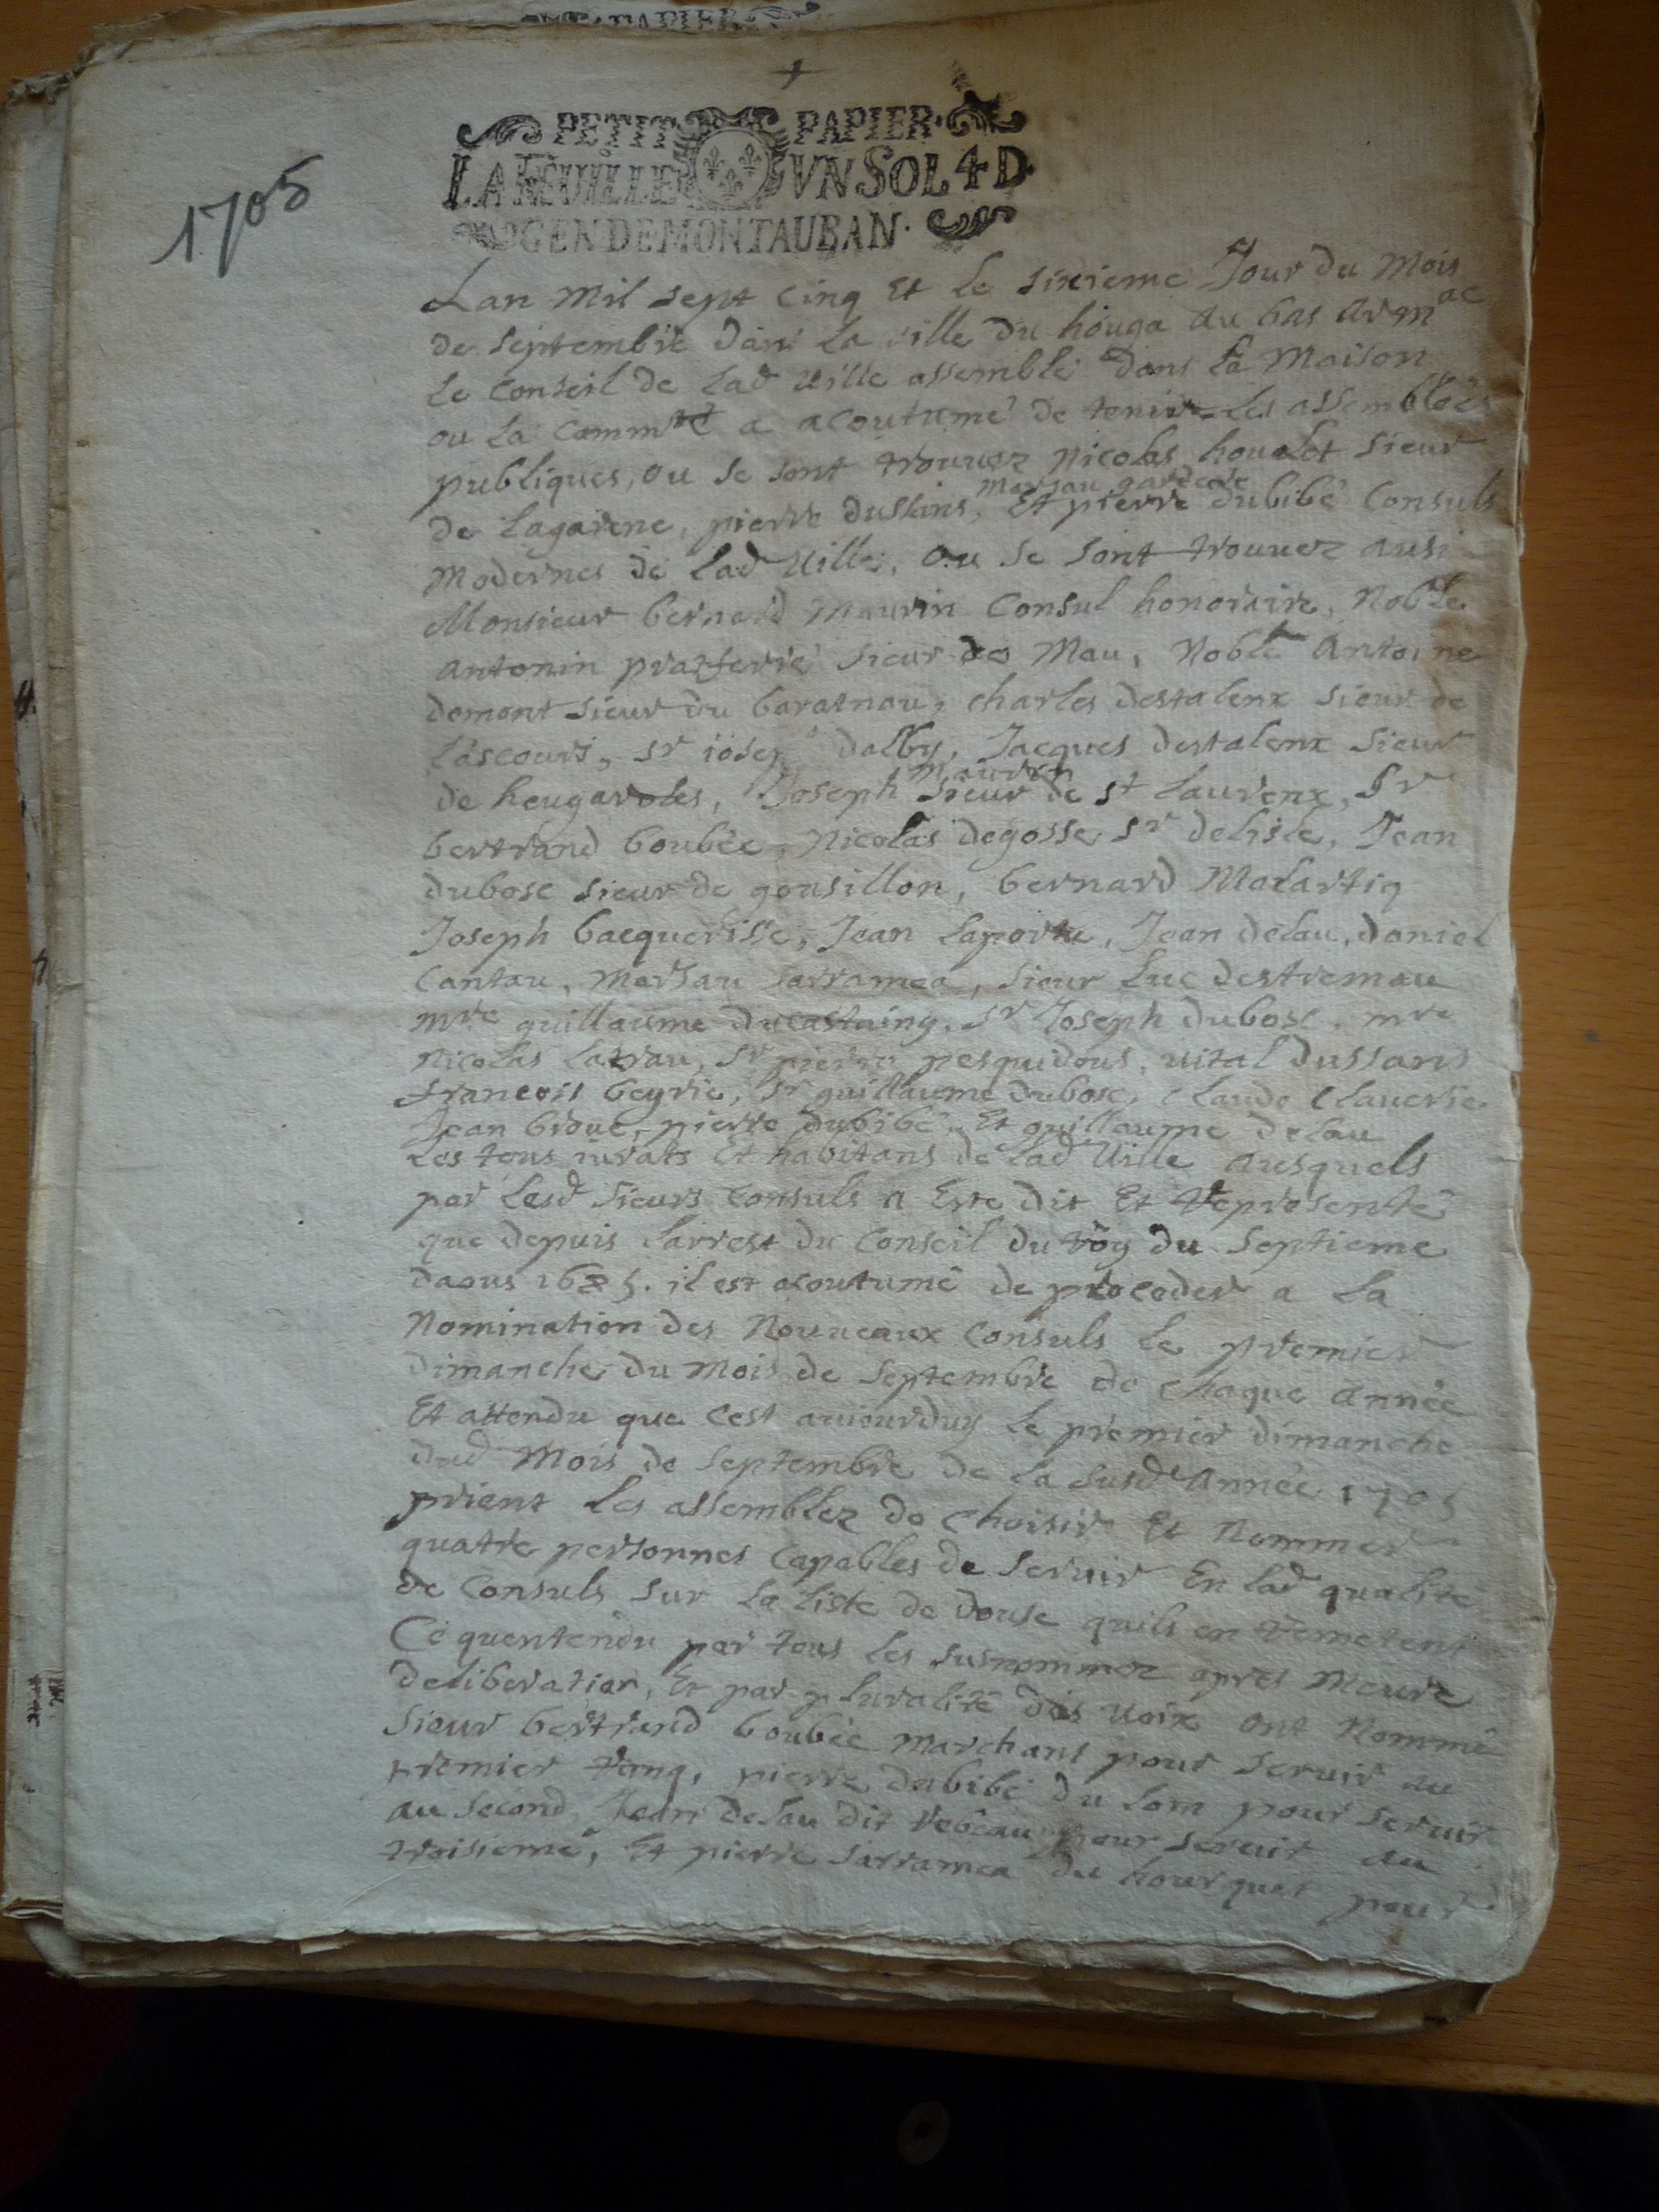 1705
PETIT PAPIER
LA FEUILLE VN SOL 4 D
GEN DE MONTAUBAN
Lan mil sept cinq et le sixieme Jour du mois
de septembre dans la ville du houga au bas armac
le conseil de lad ville assemblé dans la maison
ou la Commté a acoutumé de tenir les assemblées
publiques, ou se sont trouvez nicolas houalet sieur
de lagarene, pierre duslins, mersau gardere Et pierre dubibé Consuls
modernes de lad ville, ou se sont trouvez ausi
Monsieur bernard maurin Consul honoraire, Noble
antonin pratferré sieur de Mau, Noble Antoine
demont sieur du baratnau, charles destalenx sieur de
lascours, sr iosep dalby, Jacques destalenx sieur
de heugaroles, Joseph maurin sieur de st laurenx, sr
bertrand boubée, nicolas degosse sr delisle, Jean
dubosc sieur de gousillon, bernard Malartiq
Joseph bacquerisse, Jean laporte, Jean delau, daniel
cantau, mersau sarramea, sieur luc destremau
mre guillaume ducastaing, sr Joseph dubosc, mre
nicolas latrau, sr pierre pesquidous, vital dussans
francois beyrie, sr guillaume dubosc, Claude Claverie
Jean brouc, pierre dubibé Et guillaume delau
les tous iurats Et habitans de lad ville ausquels
par lesd sieurs consuls a Este dit Et representé
que depuis larrest du conseil du roy du septieme
daous 1685. il est acoutumé de proceder a la
nomination des nouveaux consuls le premier
dimanche du mois de septembre de chaque année
Et attendu que cest auiourduy le premier dimanche
dud mois de septembre de la susd année 1705
prient les assemblez de choisir Et nommer
quatre personnes capables de servir En lad qualité
de consuls sur la liste de douse quils en remetent
Ce quentendu par tous les susnommez apres meure
deliberation, Et par pluralité des voix ont nommé
sieur bertrand boubée marchant pour servir au
premier rang, pierre dubibé du lom pour servir
au second, Jean delau dit pour servir au
troisieme, Et pierre sarramea du hourquet pour